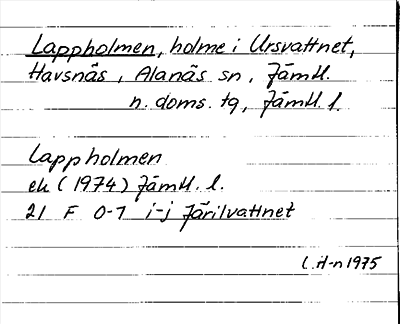 Lappholmen, holme i Ursvattnet,
Havsnäs, Alanäs sn, Jämtl.
n. doms. tg, Jämtl. l.
Lappholmen
ek (1974) Jämtl. l.
21 F 0-1 i-j Järilvattnet
L.H-n 1975